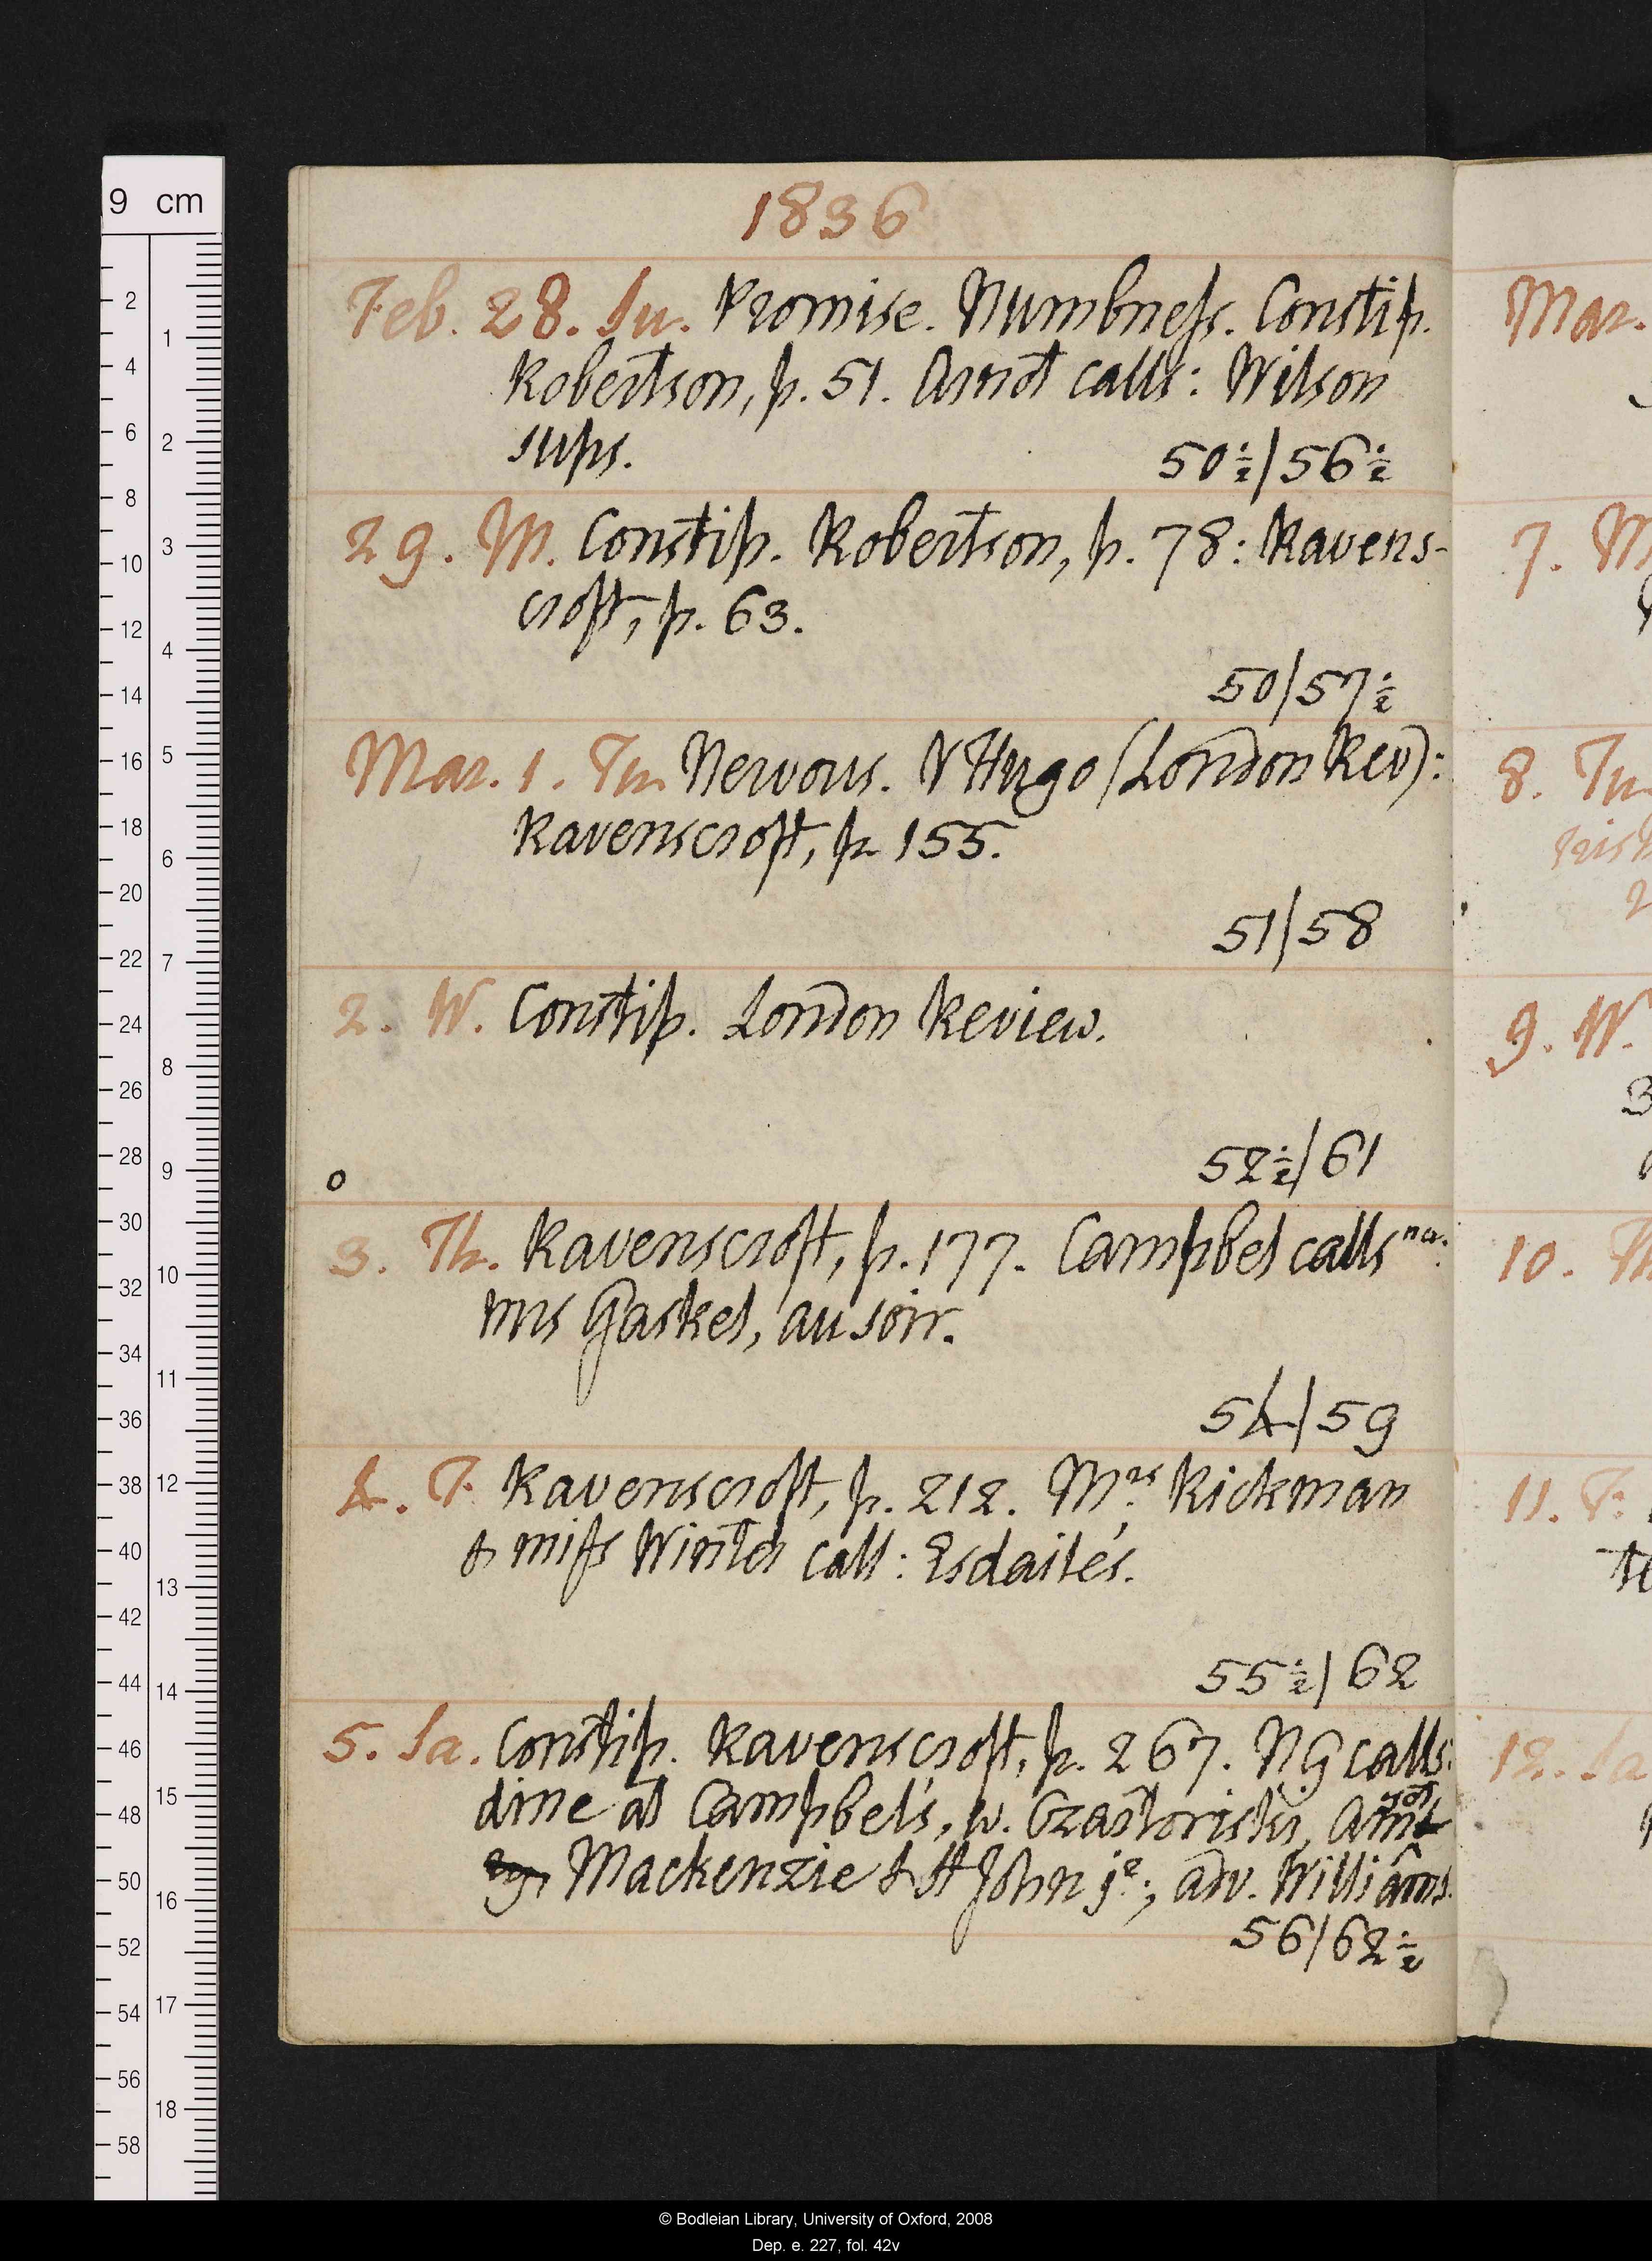 1836
Feb. 28. Su. Promise. Numbneſs. Constip.
Robertson, p. 51. Arnot calls: Wilson
sups. 50½/56½
29. M. Constip. Robertson, p. 78: Ravens-
croft, p. 63.
50/57½
Mar. 1. Tu. Nervous. V Hugo (London Rev):
Ravenscroft, p. 155.
51/58
2. W. Constip. London Review.
52½/61
o
3. Th. Ravenscroft, p. 177. Campbel calls na.
mrs Gaskel, au soir.
54/59
4. F. Ravenscroft, p. 212. Mrs Rickman
& miſs Winter call: Esdaile's.
55½/62
5. Sa. Constip. Ravenscroft, p. 267. N G calls:
dine at Campbel's, w. Czartoriski,
Mackenzie & St John jr; adv. Williams.
56/62½
Mar.
7. M
8. Tu
9. W.
3
10. Th
11. F.
te
12. Sa
9 cm
2
4
6
8
10
12
14
16
18
20
22
24
26
28
30
32
34
36
38
40
42
44
46
48
50
52
54
56
58
1
2
3
4
5
6
7
8
9
10
11
12
13
14
15
16
17
18
© Bodleian Library, University of Oxford, 2008
Dep. e. 227, fol. 42v